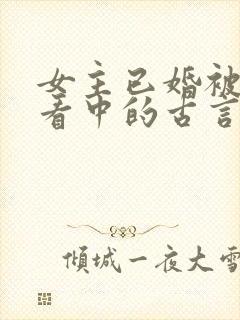 女主已婚被
看中的古言
倾城一夜大雪